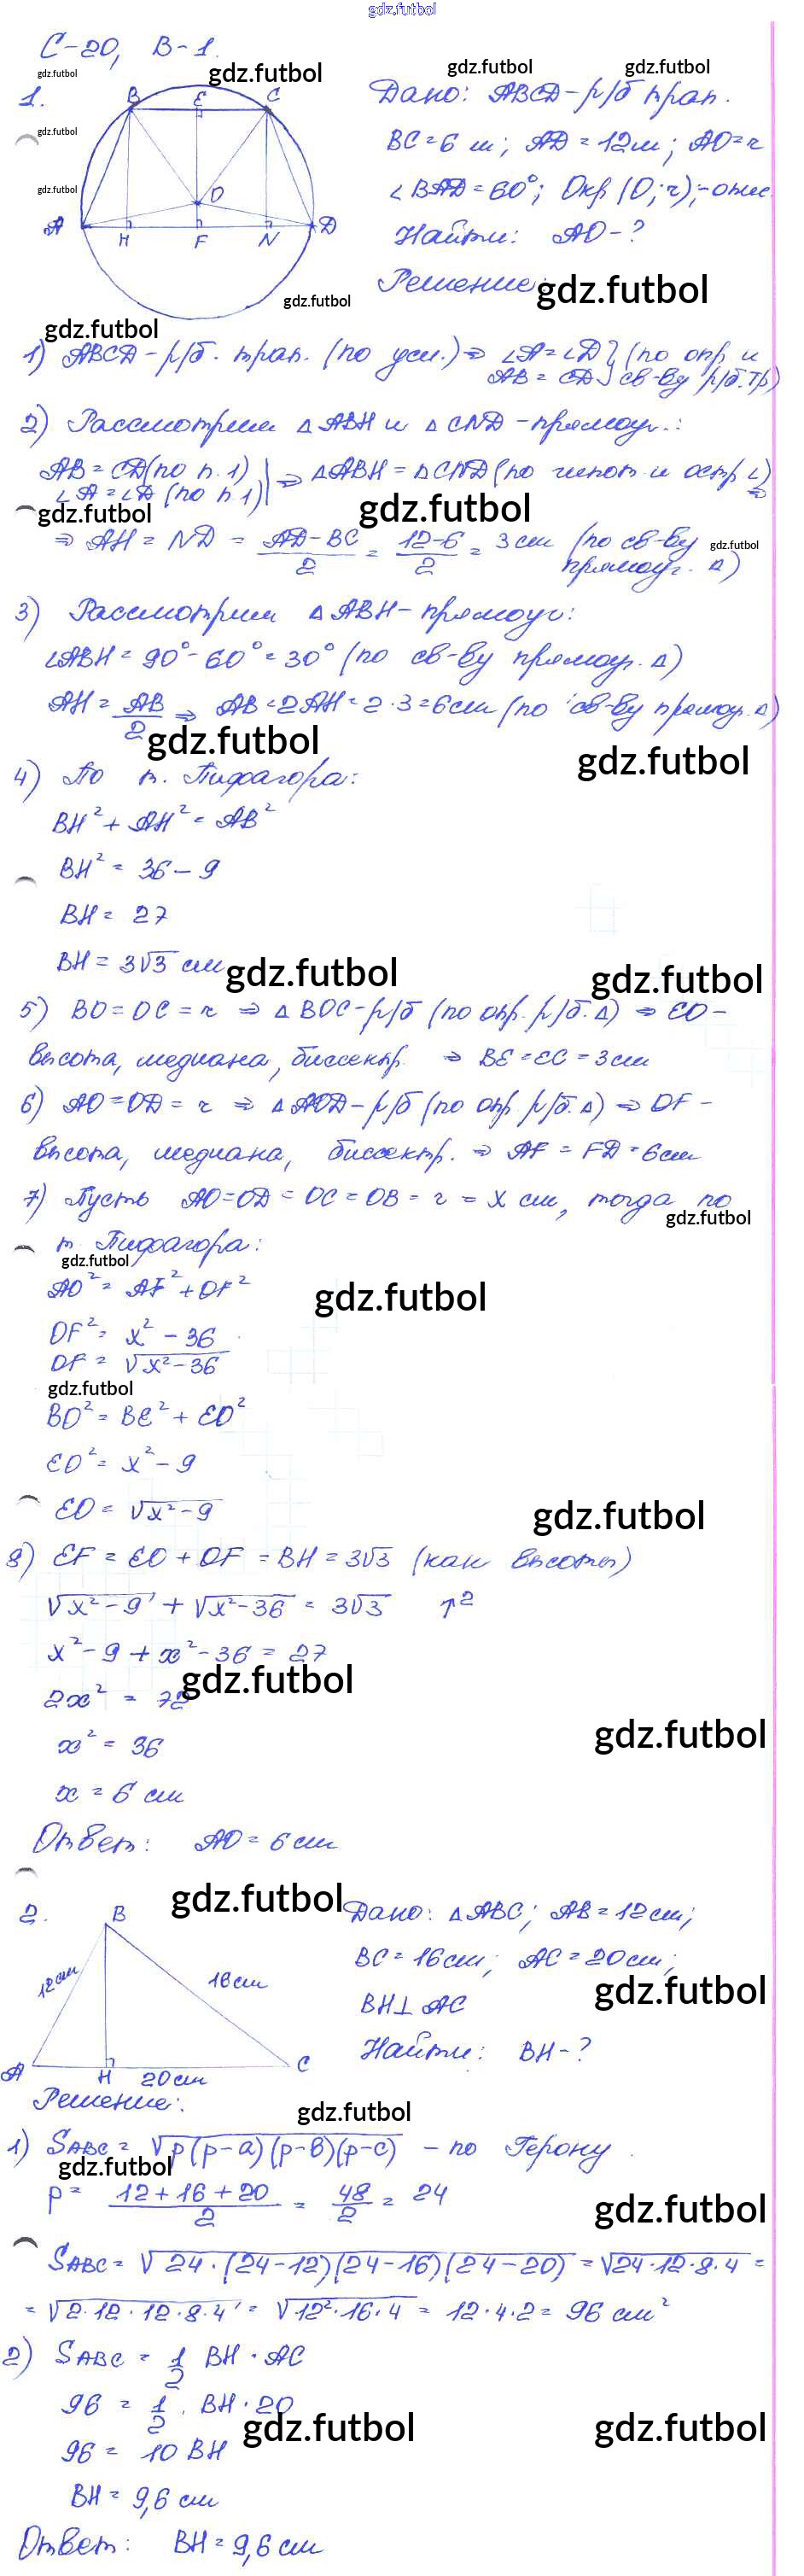 gdz.futbol
С-20, В-1.
gdz.futbol gdz.futbol gdz.futbol gdz.futbol
1. B E C
Дано: ABCD - р/б трап.
gdz.futbol
BC = 6 см; AD = 12см; AO = r
gdz.futbol
O
∠BAD = 60°; Окр (O; r) - опис.
A H F N D
Найти: AO - ?
gdz.futbol
Решение: gdz.futbol
gdz.futbol
1) ABCD - р/б. трап. (по усл.) ⇒ ∠A = ∠D } (по опр и
AB = CD } св-ву р/б. тр)
2) Рассмотрим △ABH и △CND - прямоуг.:
AB = CD (по п. 1) | ⇒ △ABH = △CND (по гипот и остр ∠)
∠A = ∠D (по п. 1) | ⇒
gdz.futbol gdz.futbol
⇒ AH = ND = (AD - BC)/2 = (12-6)/2 = 3 см (по св-ву gdz.futbol
прямоуг. △)
3) Рассмотрим △ABH - прямоуг:
∠ABH = 90° - 60° = 30° (по св-ву прямоуг. △)
AH = AB/2 ⇒ AB = 2AH = 2·3 = 6см (по св-ву прямоуг. △)
gdz.futbol gdz.futbol
4) По т. Пифагора:
BH² + AH² = AB²
BH² = 36 - 9
BH = 27
BH = 3√3 см gdz.futbol gdz.futbol
5) BO = OC = r ⇒ △BOC - р/б (по опр. р/б. △) ⇒ EO -
высота, медиана, биссектр. ⇒ BE = EC = 3см
6) AO = OD = r ⇒ △AOD - р/б (по опр р/б. △) ⇒ OF -
высота, медиана, биссектр. ⇒ AF = FD = 6см
7) Пусть AO = OD = OC = OB = r = x см, тогда по
gdz.futbol
т. Пифагора:
gdz.futbol
AO² = AF² + OF²
gdz.futbol
OF² = x² - 36
OF = √(x² - 36)
gdz.futbol
BO² = BE² + EO²
EO² = x² - 9
EO = √(x² - 9)
gdz.futbol
8) EF = EO + OF = BH = 3√3 (как высоты)
√(x² - 9) + √(x² - 36) = 3√3 ↑²
x² - 9 + x² - 36 = 27
gdz.futbol
2x² = 72
gdz.futbol
x² = 36
x = 6 см
Ответ: AO = 6 см
gdz.futbol
2. B
Дано: △ABC; AB = 12см;
12см 16см
BC = 16см; AC = 20см;
gdz.futbol
BH⊥AC
A H 20см C
Найти: BH - ?
Решение: gdz.futbol
1) SABC = √(p(p-a)(p-b)(p-c)) - по Герону.
gdz.futbol
p = (12 + 16 + 20)/2 = 48/2 = 24
gdz.futbol
SABC = √(24·(24-12)(24-16)(24-20)) = √(24·12·8·4) =
= √(2·12·12·8·4) = √(12²·16·4) = 12·4·2 = 96 см²
2) SABC = 1/2 BH·AC
96 = 1/2·BH·20
gdz.futbol gdz.futbol
96 = 10 BH
BH = 9,6 см
Ответ: BH = 9,6 см